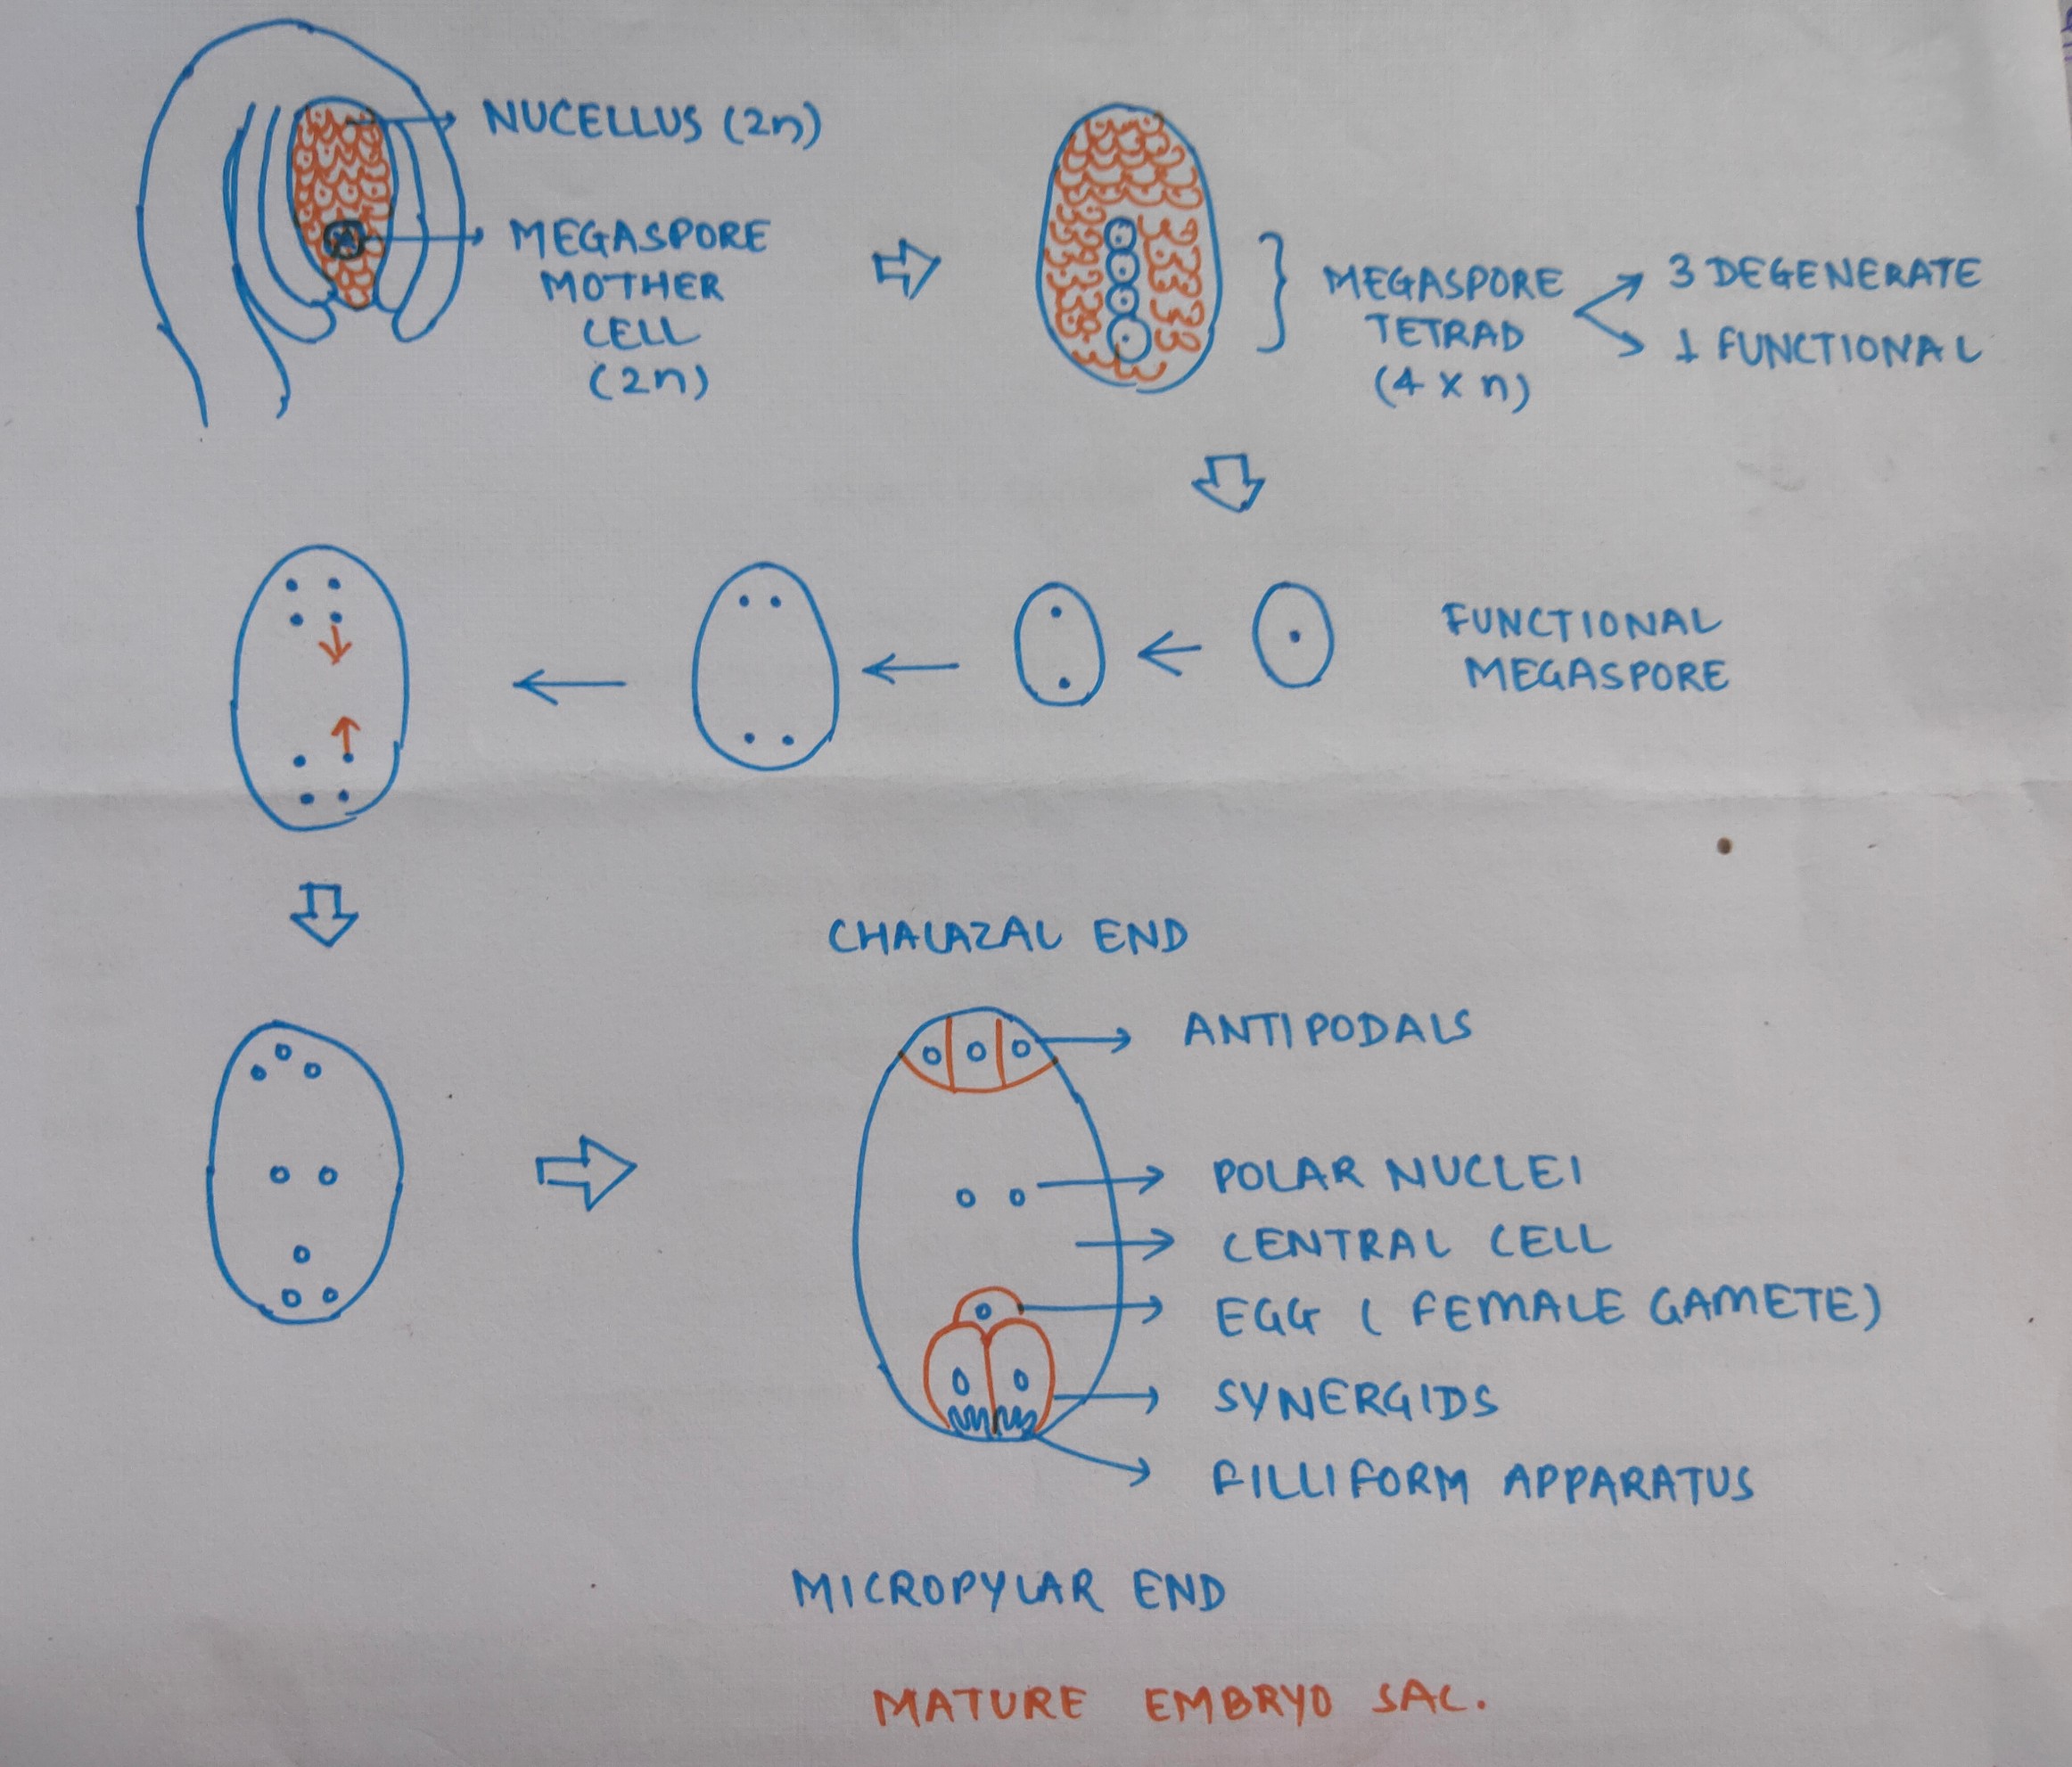 NUCELLUS (2n)
MEGASPORE
MOTHER
CELL
(2n)
MEGASPORE
TETRAD
(4 x n)
3 DEGENERATE
1 FUNCTIONAL
FUNCTIONAL
MEGASPORE
CHALAZAL END
ANTIPODALS
POLAR NUCLEI
CENTRAL CELL
EGG ( FEMALE GAMETE)
SYNERGIDS
FILLIFORM APPARATUS
MICROPYLAR END
MATURE EMBRYO SAC.